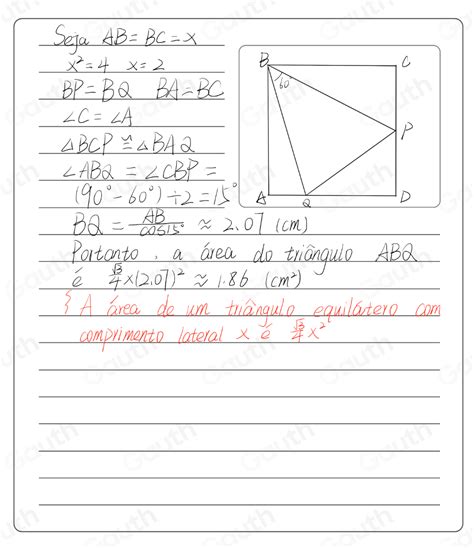 Seja AB=BC=x
x²=4 x=2
BP=BQ BA=BC
∠C=∠A
△BCP≅△BAQ
∠ABQ=∠CBP=
(90°-60°)÷2=15°
BQ=AB/cos15°≈2.07(cm)
Portanto, a área do triângulo ABQ
é √3/4×(2.07)²≈1.86(cm²)
A área de um triângulo equilátero com
comprimento lateral x é √3/4x²
B C
60
P
A Q D
Gauth